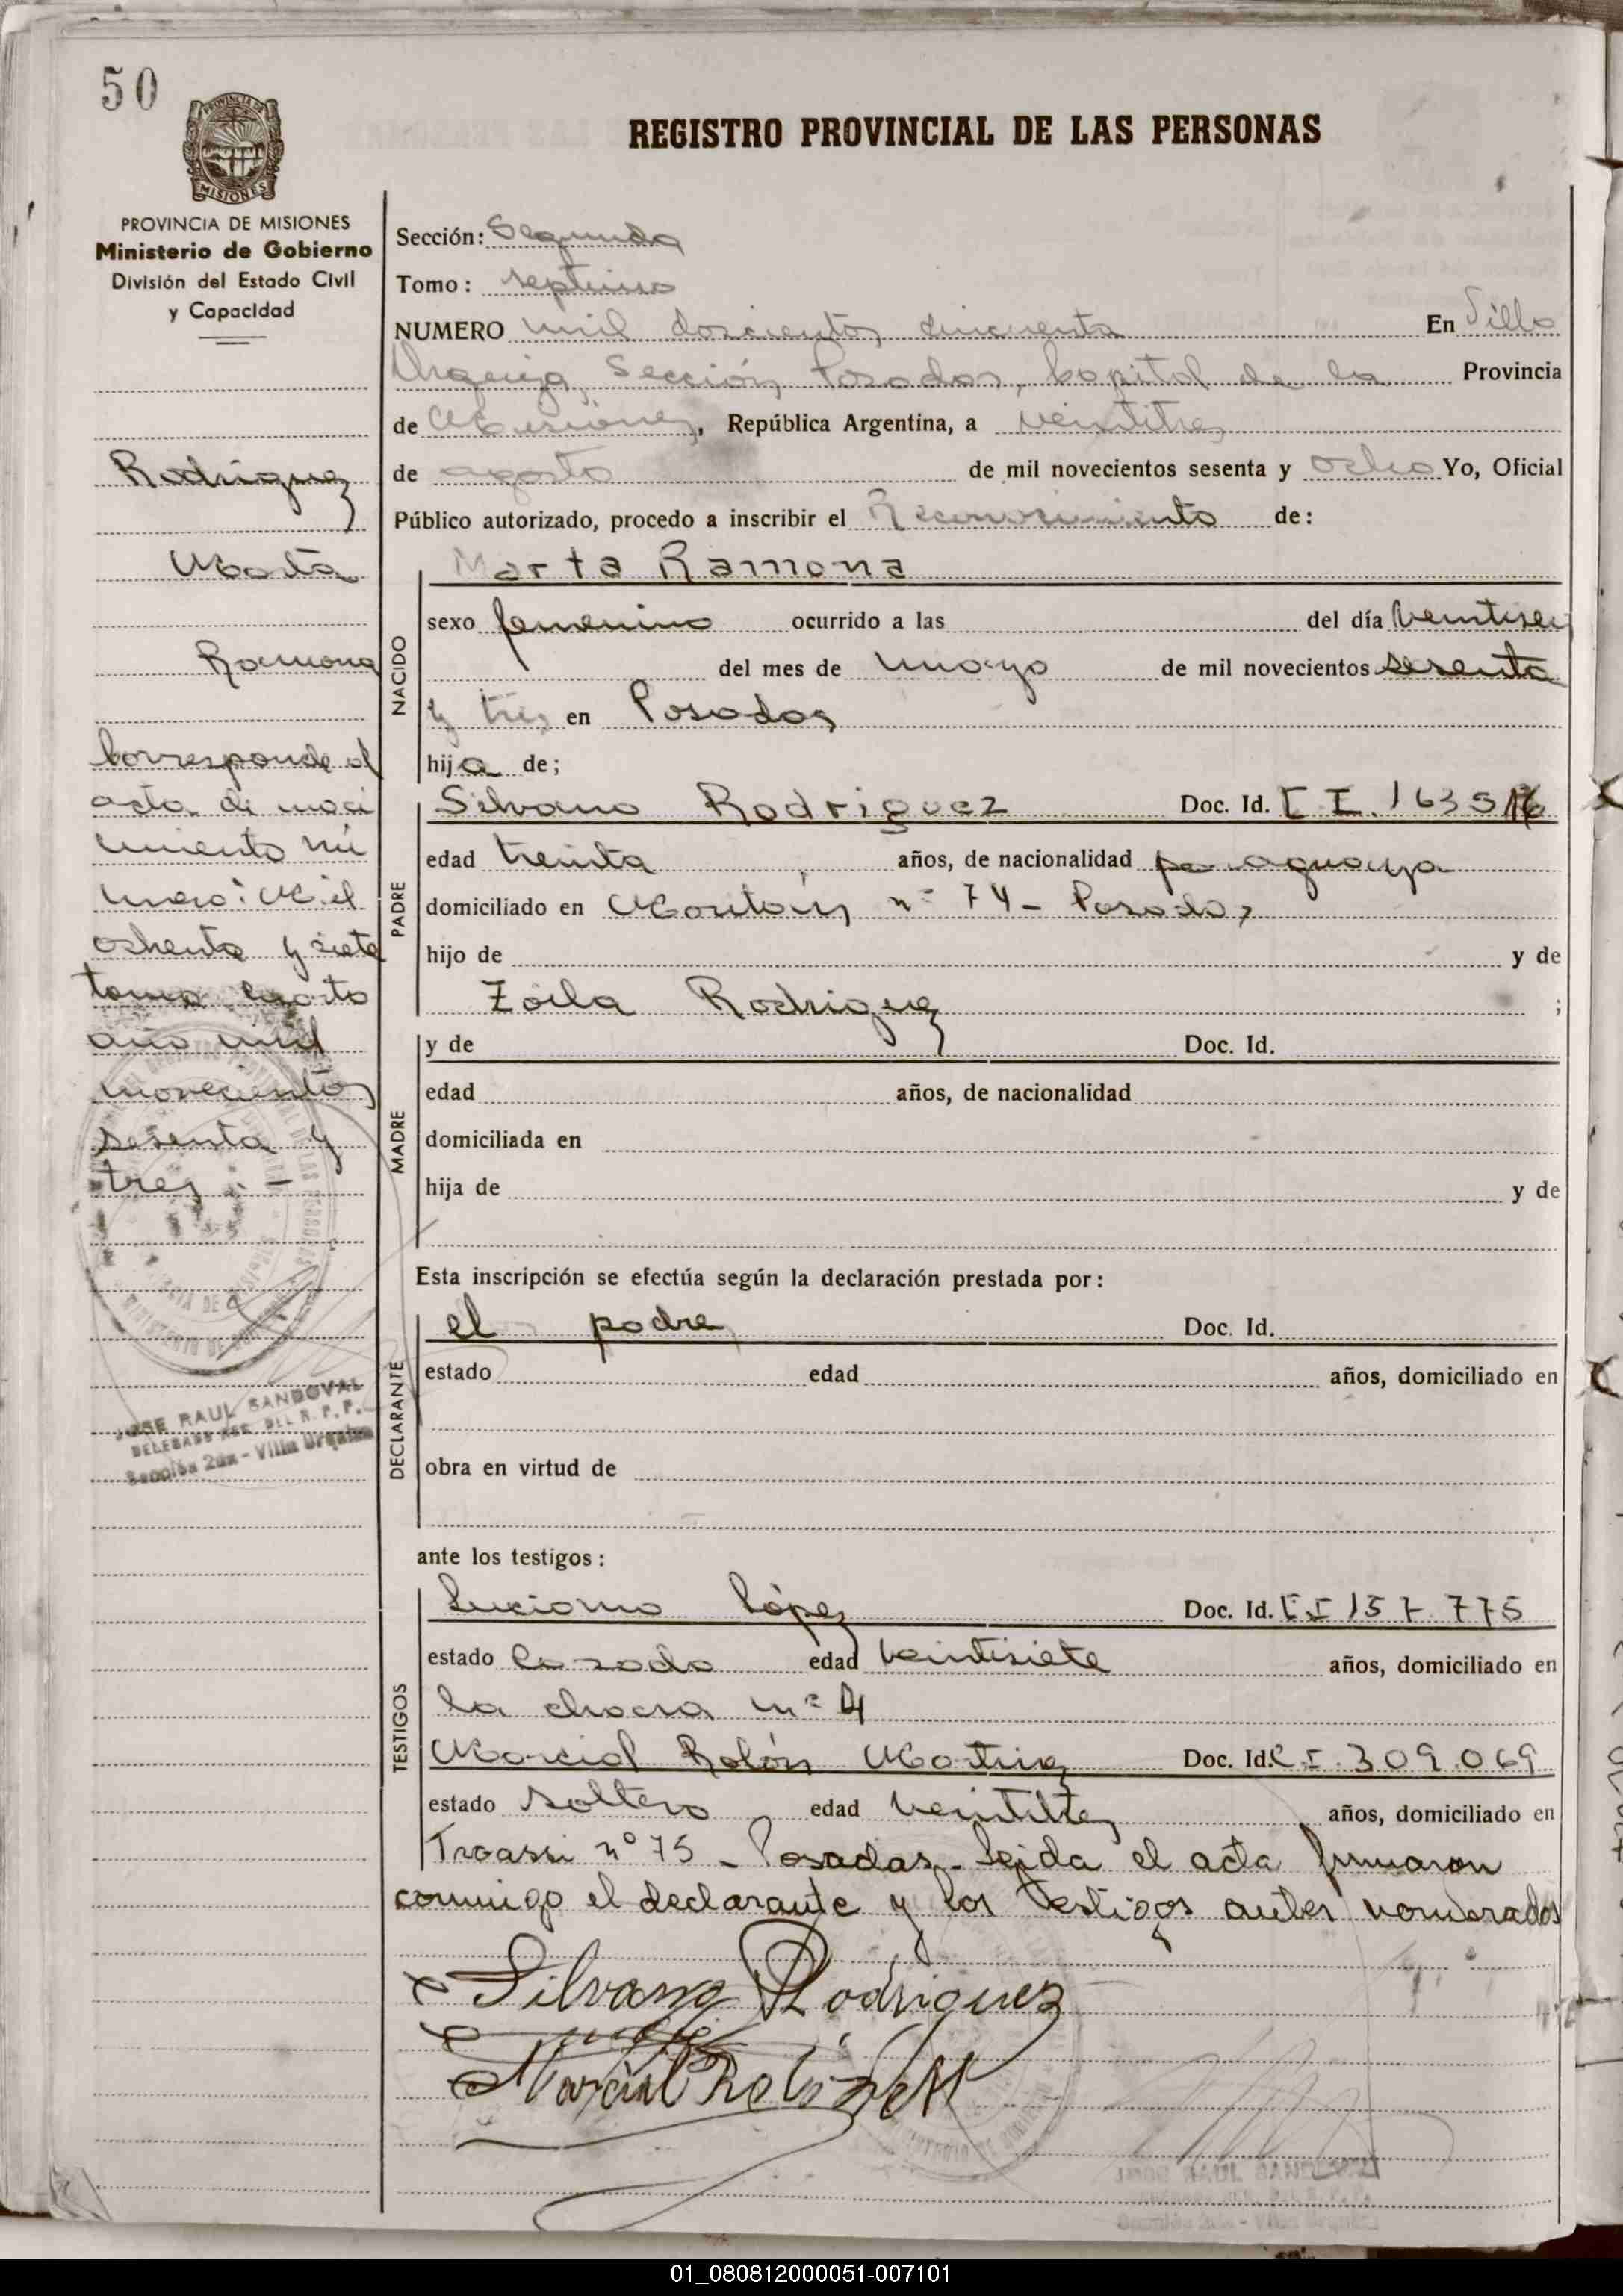 50
PROVINCIA DE MISIONES
MISIONES
REGISTRO PROVINCIAL DE LAS PERSONAS
PROVINCIA DE MISIONES
Ministerio de Gobierno
División del Estado Civil
y Capacidad
Rodriguez
Marta
Ramona
Corresponde al
acta de naci
miento nú
mero: Mil
ochenta y siete
tomo cuarto
año mil
novecientos
sesenta y
tres . –
JOSE RAUL SANDOVAL
DELEGADO DEL R. P. P.
Sección 2da - Villa Urquiza
Sección: Segunda
Tomo: septimo
NUMERO mil doscientos cincuenta En Villa
Urquiza, Sección, Posadas, Capital de la Provincia
de Misiones, República Argentina, a veintitres
de agosto de mil novecientos sesenta y ocho Yo, Oficial
Público autorizado, procedo a inscribir el Reconocimiento de:
NACIDO
Marta Ramona
sexo femenino ocurrido a las del día veintiseis
del mes de mayo de mil novecientos sesenta
y tres en Posadas
hija de;
PADRE
Silvano Rodriguez Doc. Id. C I. 1635
edad treinta años, de nacionalidad paraguaya
domiciliado en nº 74 - Posadas
hijo de y de
Zoila Rodriguez ;
MADRE
y de Doc. Id.
edad años, de nacionalidad
domiciliada en
hija de y de
Esta inscripción se efectúa según la declaración prestada por:
DECLARANTE
el padre Doc. Id.
estado edad años, domiciliado en
obra en virtud de
ante los testigos:
TESTIGOS
Luciano López Doc. Id. C I 157.775
estado Casado edad veintisiete años, domiciliado en
la chacra nº 4
Marcial Rolón Martinez Doc. Id. C.I. 309.069
estado soltero edad años, domiciliado en
nº 75 - Posadas - Leida el acta firmaron
conmigo el declarante y los testigos antes nombrados
Silvano Rodriguez
Marcial Rolón M
JOSE RAUL SANDOVAL
Sección 2da - Villa Urquiza
01_080812000051-007101